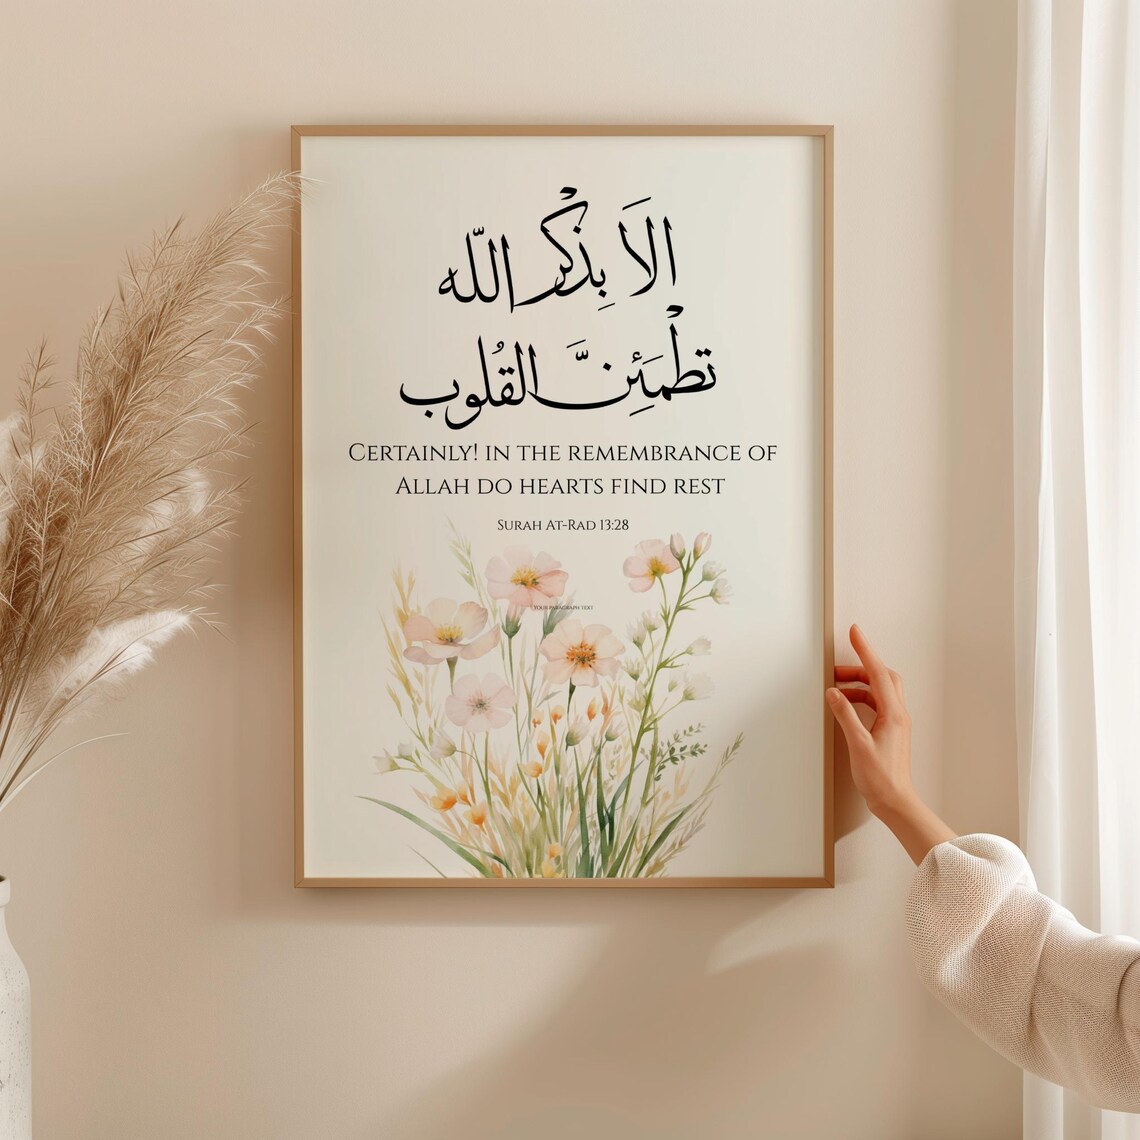 الَا بِذْكرِ اللّه
تطْمَئِنَّ القُلوب
Certainly! in the remembrance of
Allah do hearts find rest
Surah At-Rad 13:28
Your paragraph text